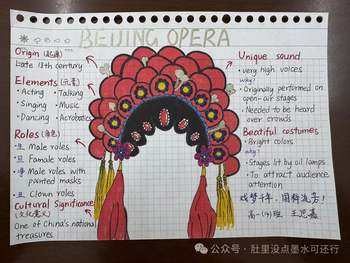 BEIJING OPERA
Origin (起源)
Late 18th century
Elements (元素)
• Acting • Talking
• Singing • Music
• Dancing • Acrobatics
Roles (角色)
• 生 Male roles
• 旦 Female roles
• 净 Male roles with
painted masks
• 丑 Clown roles
Cultural Significance
(文化意义)
One of China's national
treasures.
Unique sound
• very high voices
why?
• Originally performed on
open-air stages
• Needed to be heard
over crowds
Beatiful costumes
• Bright colors
why?
• Stages lit by oil lamps
• To attract audience
attention
高一(4)班
公众号·肚里没点墨水可还行